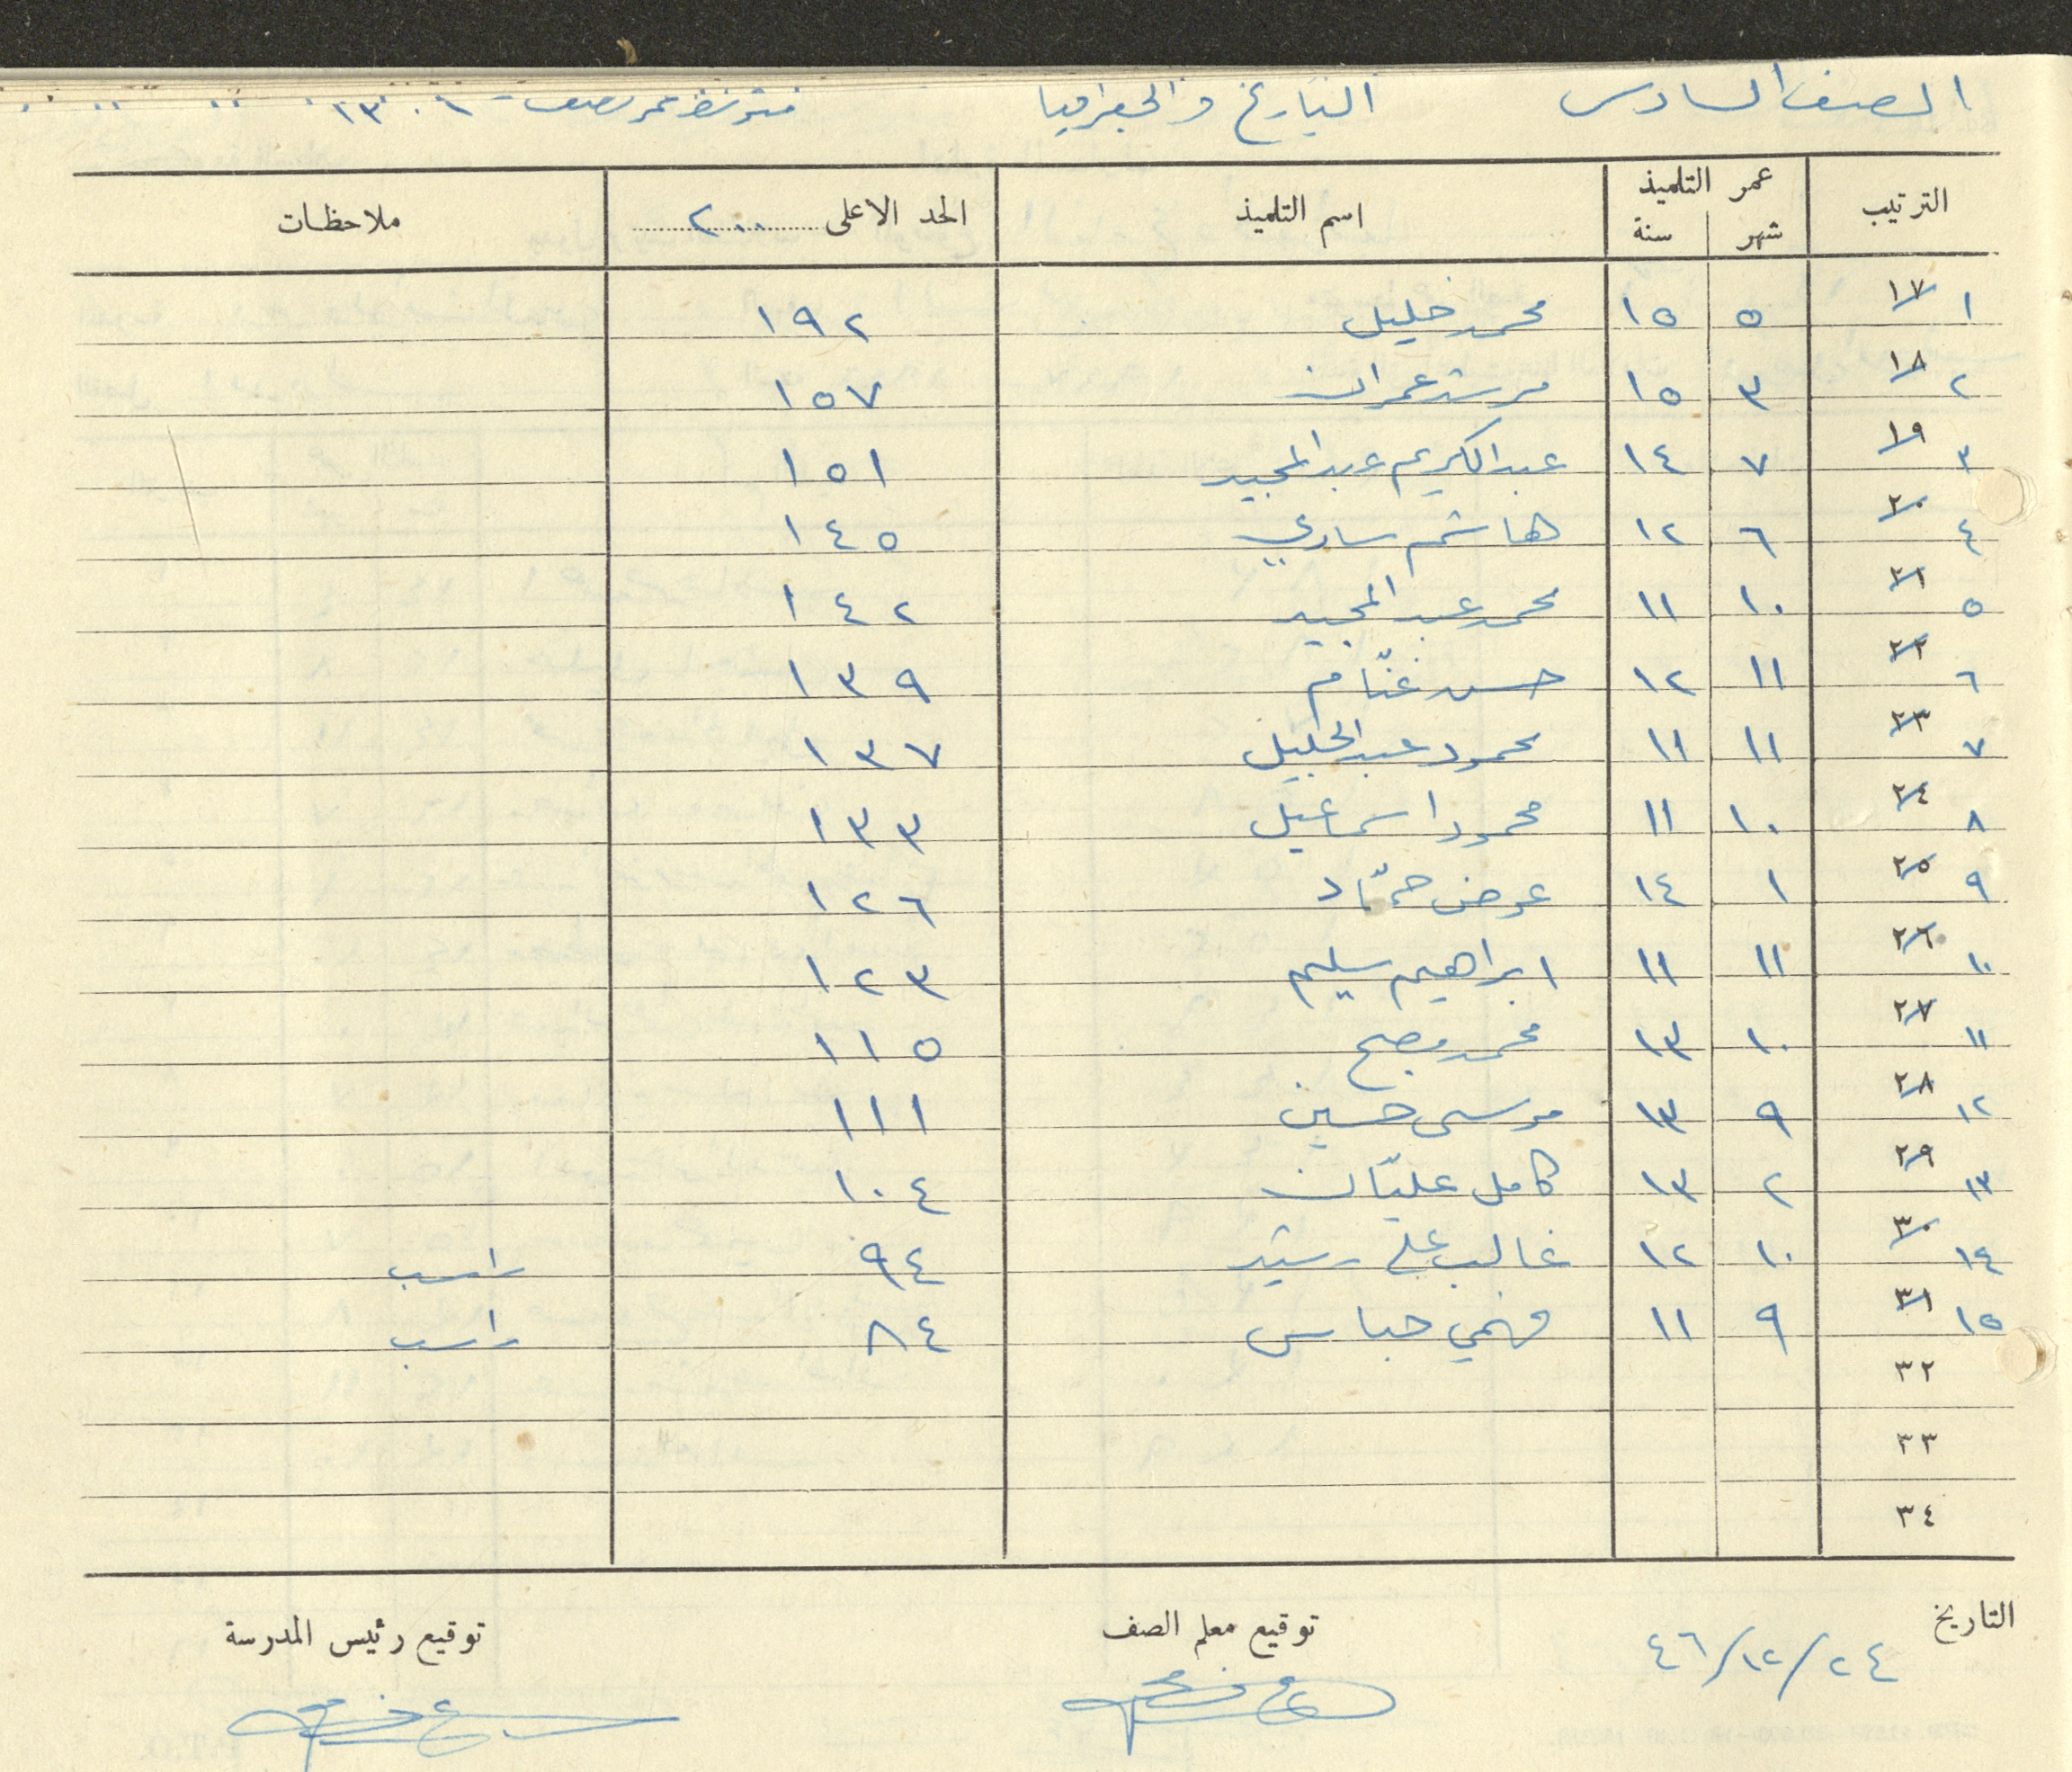 الصف السادس التاريخ والجغرافيا متوسط عمر الصف - ٦ ١٣
الترتيب عمر التلميذ اسم التلميذ الحد الاعلى ٢٠٠ ملاحظات
شهر سنة
١ ١٧ ٥ ١٥ محمد خليل ١٩٢
٢ ١٨ ٣ ١٥ مرشد عمران ١٥٧
٣ ١٩ ٧ ١٤ عبد الكريم عبد المجيد ١٥١
٤ ٢٠ ٦ ١٢ هاشم ساري ١٤٥
٥ ٢١ ١٠ ١١ محمد عبد المجيد ١٤٢
٦ ٢٢ ١١ ١٢ حسن غنّام ١٣٩
٧ ٢٣ ١١ ١١ محمود عبد الجليل ١٣٧
٨ ٢٤ ١٠ ١١ محمود اسماعيل ١٣٣
٩ ٢٥ ١ ١٤ عوض حمّاد ١٢٦
١٠ ٢٦ ١١ ١١ ابراهيم سليم ١٢٣
١١ ٢٧ ١٠ ١٣ محمد مصلح ١١٥
١٢ ٢٨ ٩ ١٣ موسى حسين ١١١
١٣ ٢٩ ٢ ١٣ كامل عليّان ١٠٤
١٤ ٣٠ ١٠ ١٢ غالب علي رشيد ٩٤ راسب
١٥ ٣١ ٩ ١١ فهمي حباس ٨٤ راسب
٣٢
٣٣
٣٤
التاريخ توقيع معلم الصف توقيع رئيس المدرسة
٢٤/١٢/٤٦